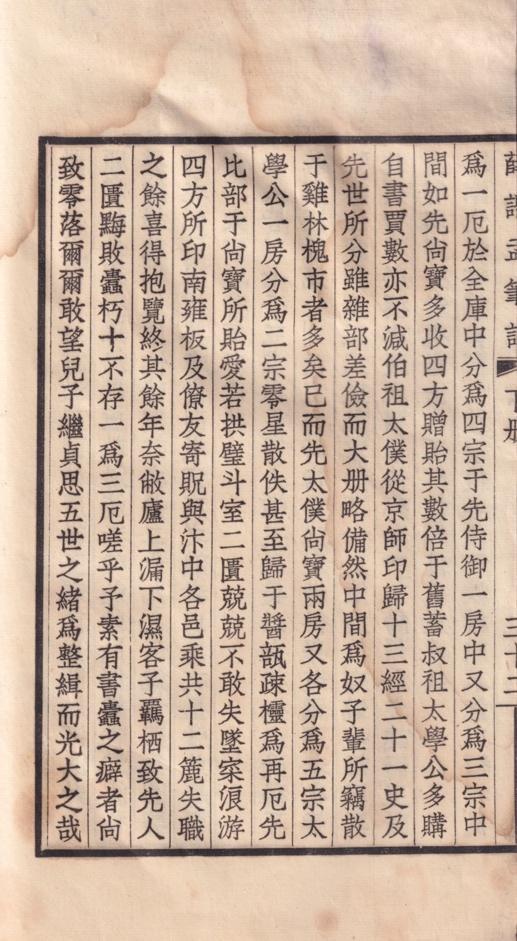 下册
三十二
爲一厄於全庫中分爲四宗于先侍御一房中又分爲三宗中
間如先尙寶多收四方贈貽其數倍于舊蓄叔祖太學公多購
自書賈數亦不減伯祖太僕從京師印歸十三經二十一史及
先世所分雖雜部差儉而大册略備然中間爲奴子輩所竊散
于雞林槐市者多矣已而先太僕尙寶兩房又各分爲五宗太
學公一房分爲二宗零星散佚甚至歸于醬瓿疎櫺爲再厄先
比部于尙寶所貽愛若拱璧斗室二匱兢兢不敢失墜宷浪游
四方所印南雍板及僚友寄貺與汴中各邑乘共十二簏失職
之餘喜得抱覽終其餘年奈敝廬上漏下濕客子羈栖致先人
二匱黦敗蠹朽十不存一爲三厄嗟乎予素有書蠹之癖者尙
致零落爾爾敢望兒子繼貞思五世之緒爲整緝而光大之哉